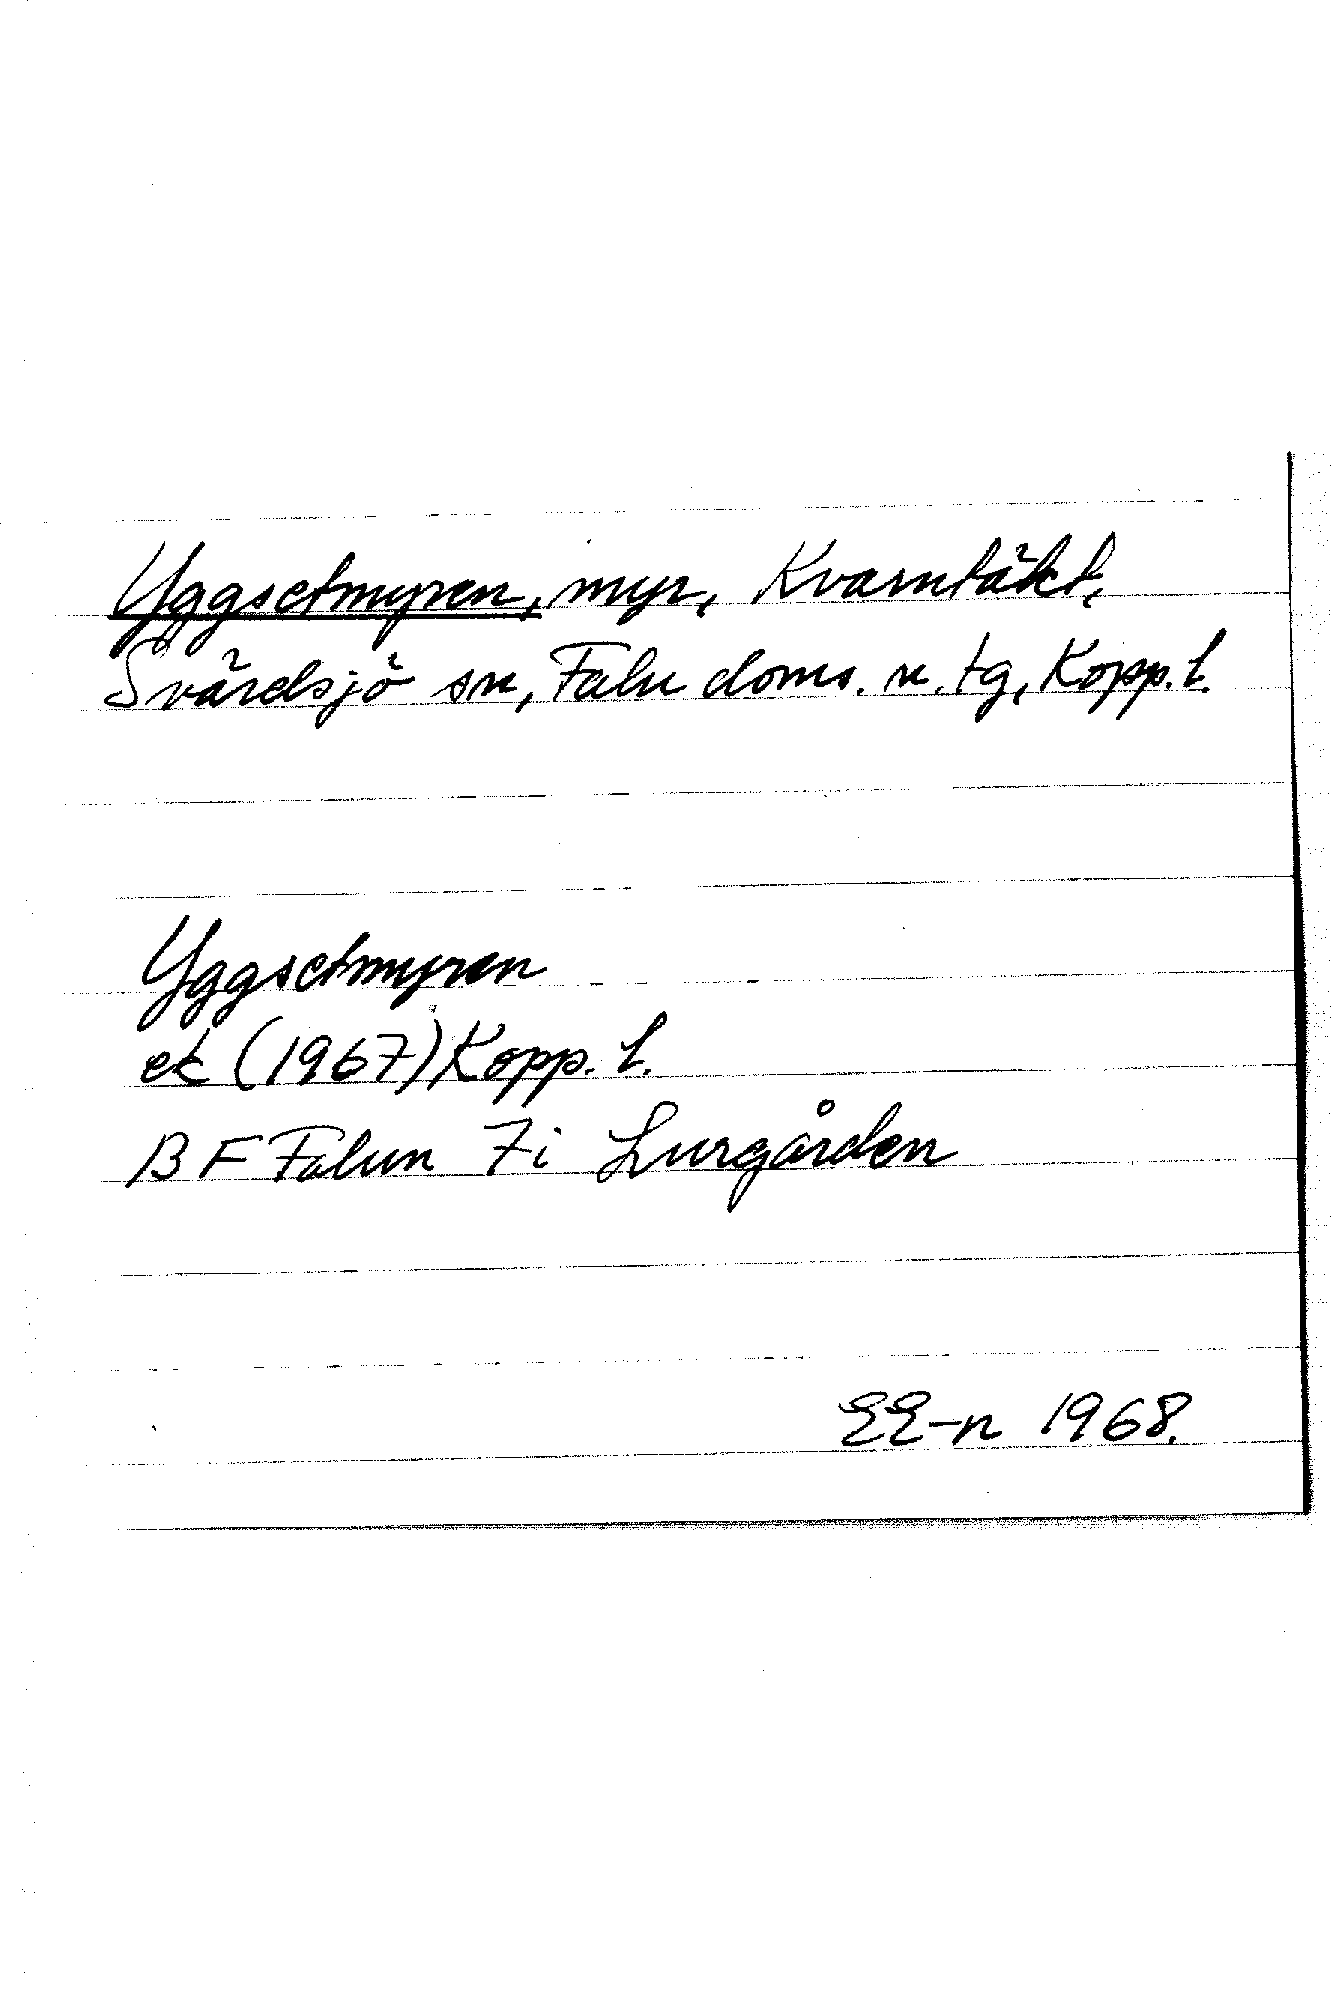 Yggsetmyren, myr, Kvarntäkt,
Svärdsjö sn, Falu doms. n. tg, Kopp. l.
Yggsetmyren
ek (1967) Kopp. l.
BF Falun 7i Lurgården
EE-n 1968.